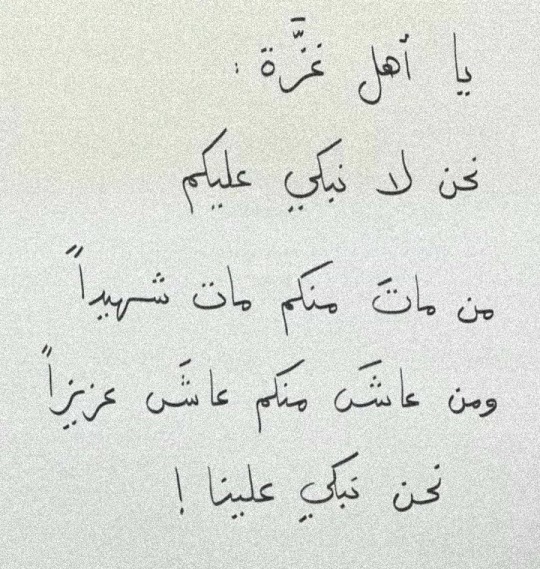 يا أهل غزَّة :
نحن لا نبكي عليكم
من ماتَ منكم مات شهيداً
ومن عاشَ منكم عاشَ عزيزاً
نحن نبكي علينا !